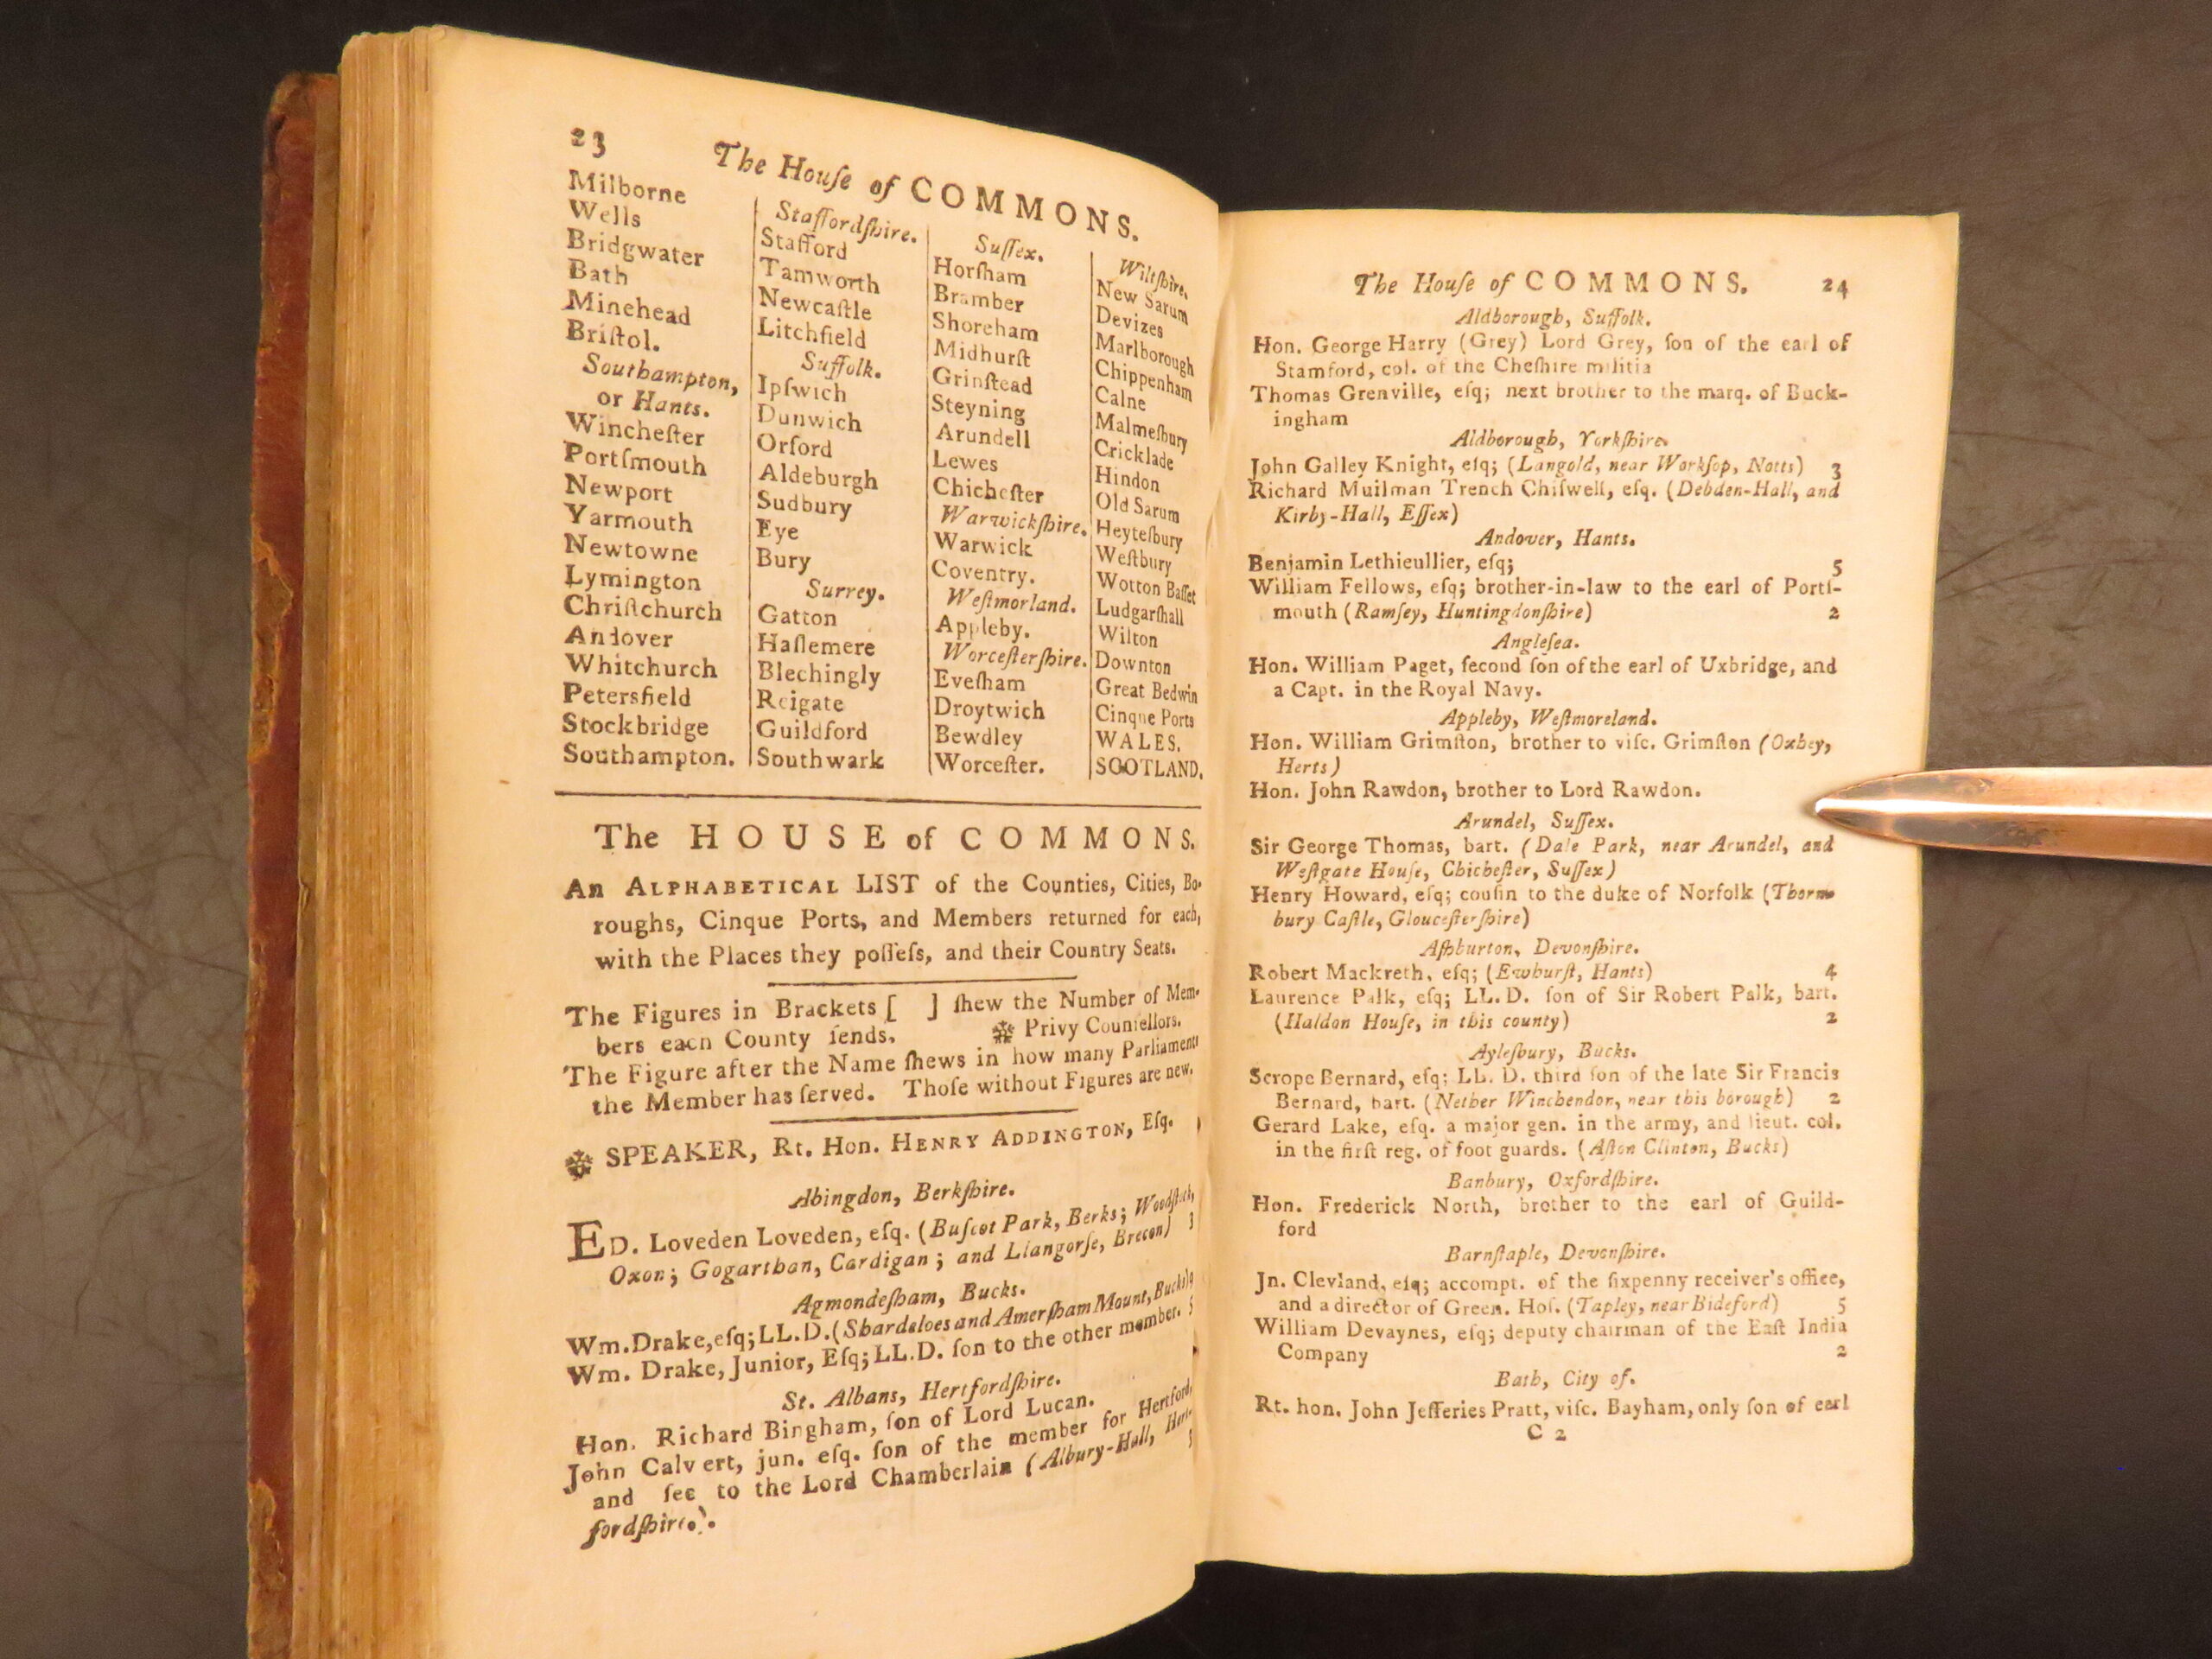 23
The Houſe of COMMONS.
Milborne
Wells
Bridgwater
Bath
Minehead
Briſtol.
Southampton,
or Hants.
Wincheſter
Portſmouth
Newport
Yarmouth
Newtowne
Lymington
Chriſtchurch
Andover
Whitchurch
Petersfield
Stockbridge
Southampton.
Staffordſhire.
Stafford
Tamworth
Newcaſtle
Litchfield
Suffolk.
Ipſwich
Dunwich
Orford
Aldeburgh
Sudbury
Eye
Bury
Surrey.
Gatton
Haſlemere
Blechingly
Reigate
Guildford
Southwark
Suſſex.
Horſham
Bramber
Shoreham
Midhurſt
Grinſtead
Steyning
Arundell
Lewes
Chicheſter
Warwickſhire.
Warwick
Coventry.
Weſtmorland.
Appleby.
Worceſterſhire.
Eveſham
Droytwich
Bewdley
Worceſter.
Wiltſhire.
New Sarum
Devizes
Marlborough
Chippenham
Calne
Malmeſbury
Cricklade
Hindon
Old Sarum
Heyteſbury
Weſtbury
Wotton Baſſet
Ludgarſhall
Wilton
Downton
Great Bedwin
Cinque Ports
WALES.
SCOTLAND.
The HOUSE of COMMONS.
An ALPHABETICAL LIST of the Counties, Cities, Bo-
roughs, Cinque Ports, and Members returned for each,
with the Places they poſſeſs, and their Country Seats.
The Figures in Brackets [ ] ſhew the Number of Mem-
bers each County ſends. ❉ Privy Counſellors.
The Figure after the Name ſhews in how many Parliaments
the Member has ſerved. Thoſe without Figures are new.
❉ SPEAKER, Rt. Hon. HENRY ADDINGTON, Eſq.
Abingdon, Berkſhire.
ED. Loveden Loveden, eſq. (Buſcot Park, Berks; Woodſtock,
Oxon; Gogarthan, Cardigan; and Llangorſe, Brecon) 3
Agmondeſham, Bucks.
Wm. Drake, eſq; LL.D. (Shardeloes and Amerſham Mount, Bucks)
Wm. Drake, Junior, Eſq; LL.D. ſon to the other member.
St. Albans, Hertfordſhire.
Hon. Richard Bingham, ſon of Lord Lucan.
John Calvert, jun. eſq. ſon of the member for Hertford,
and ſec to the Lord Chamberlain (Albury-Hall, Hert-
fordſhire.).
The Houſe of COMMONS. 24
Aldborough, Suffolk.
Hon. George Harry (Grey) Lord Grey, ſon of the earl of
Stamford, col. of the Cheſhire militia
Thomas Grenville, eſq; next brother to the marq. of Buck-
ingham
Aldborough, Yorkſhire.
John Galley Knight, eſq; (Langold, near Workſop, Notts) 3
Richard Muilman Trench Chiſwell, eſq. (Debden-Hall, and
Kirby-Hall, Eſſex)
Andover, Hants.
Benjamin Lethieullier, eſq; 5
William Fellows, eſq; brother-in-law to the earl of Portſ-
mouth (Ramſey, Huntingdonſhire) 2
Angleſea.
Hon. William Paget, ſecond ſon of the earl of Uxbridge, and
a Capt. in the Royal Navy.
Appleby, Weſtmoreland.
Hon. William Grimſton, brother to viſc. Grimſton (Oxhey,
Herts)
Hon. John Rawdon, brother to Lord Rawdon.
Arundel, Suſſex.
Sir George Thomas, bart. (Dale Park, near Arundel, and
Weſtgate Houſe, Chicheſter, Suſſex)
Henry Howard, eſq; couſin to the duke of Norfolk (Thorn-
bury Caſtle, Glouceſterſhire)
Aſhburton, Devonſhire.
Robert Mackreth, eſq; (Ewhurſt, Hants) 4
Laurence Palk, eſq; LL.D. ſon of Sir Robert Palk, bart.
(Haldon Houſe, in this county) 2
Ayleſbury, Bucks.
Scrope Bernard, eſq; LL. D. third ſon of the late Sir Francis
Bernard, bart. (Nether Winchendon, near this borough) 2
Gerard Lake, eſq. a major gen. in the army, and lieut. col.
in the firſt reg. of foot guards. (Aſton Clinton, Bucks)
Banbury, Oxfordſhire.
Hon. Frederick North, brother to the earl of Guild-
ford
Barnſtaple, Devonſhire.
Jn. Clevland, eſq; accompt. of the ſixpenny receiver's office,
and a director of Green. Hoſ. (Tapley, near Bideford) 5
William Devaynes, eſq; deputy chairman of the Eaſt India
Company 2
Bath, City of.
Rt. hon. John Jefferies Pratt, viſc. Bayham, only ſon of earl
C 2